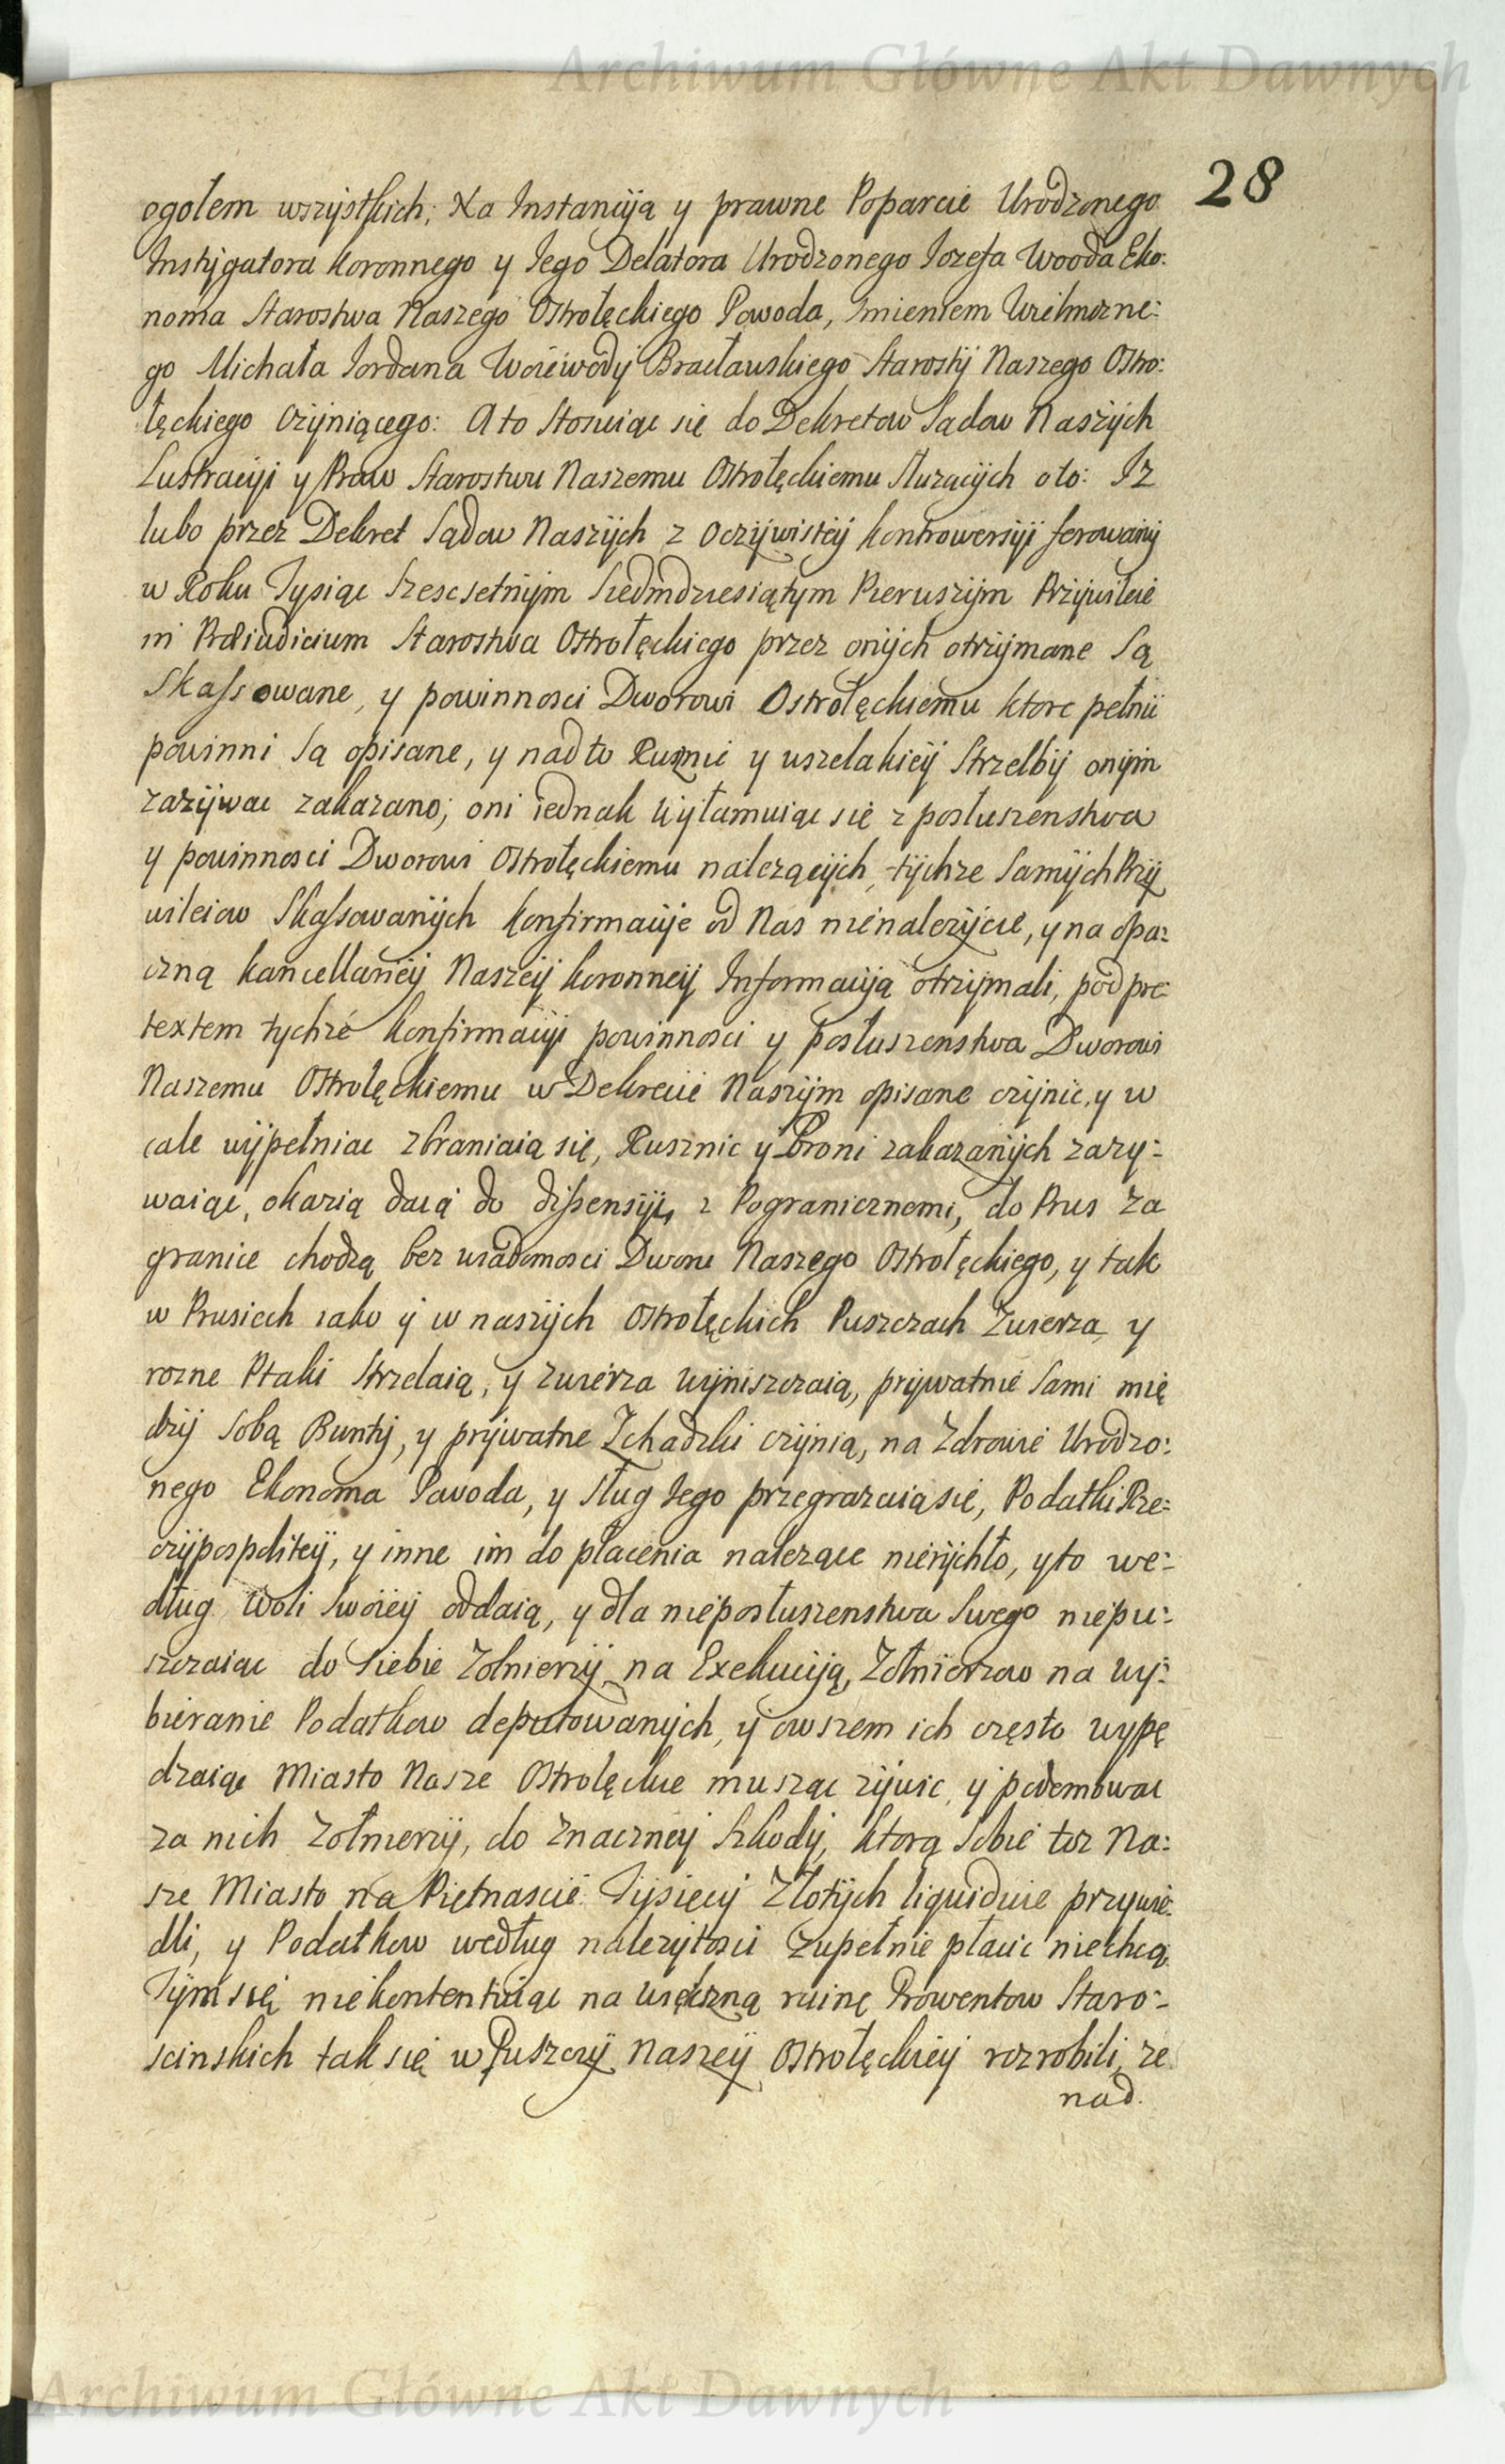 Archiwum Główne Akt Dawnych
28
ogołem wszystkich; Na Instancyią y prawne Poparcie Urodzonego
Instygatora Koronnego y Iego Delatora Urodzonego Iozefa Wooda Eko:
noma Starostwa Naszego Ostrołęckiego Powoda, Imieniem Wielmozne:
go Michała Iordana Woiewody Bracławskiego Starosty Naszego Ostro:
łęckiego Czyniącego: A to Stosuiąc się do Dekretow Sądow Naszych
Lustracyi y Praw Starostwu Naszemu Ostrołęckiemu Słuzących oto: Iz
lubo przez Dekret Sądow Naszych z Oczywistey Kontrowersyi ferowany
w Roku Tysiąc Szescsetnym Siedmdziesiątym Pierwszym Przywileie
in Præiudicium Starostwa Ostrołęckiego przez onych otrzymane Są
Skassowane, y powinnosci Dworowi Ostrołęckiemu ktore pełnic
powinni Są opisane, y nadto Rusznic y wszelakiey Strzelby onym
zazywac zakazano; oni iednak wyłamuiąc się z posłuszenstwa
y powinnosci Dworowi Ostrołęckiemu nalezących, tychze Samych Przy
wileiow Skassowanych Konfirmacyie od Nas nienalezycie, y na opa:
czną Kancellaryey Naszey Koronney Informacyią otrzymali, pod pre:
textem tychze Konfirmacyi powinnosci y posłuszenstwa Dworowi
Naszemu Ostrołęckiemu w Dekrecie Naszym opisane czynic, y w
cale wypełniac zbraniaią się, Rusznic y Broni zakazanych zazy:
waiąc, okazią daią do dissensyi, z Pogranicznemi, do Prus za
granice chodzą bez wiadomosci Dworu Naszego Ostrołęckiego, y tak
w Prusiech iako y w naszych Ostrołęckich Puszczach Zwierza y
rozne Ptaki Strzelaią, y zwierza wyniszczaią, prywatnie Sami mię
dzy Sobą Bunty, y prywatne Zchadzki czynią, na Zdrowie Urodzo:
nego Ekonoma Powoda, y Sług Iego przegrazaią się, Podatki Rze:
czypospolitey, y inne im do płacenia nalezące nierychło, y to we:
dług Woli Swoiey oddaią, y dla nieposłuszenstwa Swego niepu:
szczaiąc do Siebie Zołnierzy na Exekucyią, Zołnierzow na wy:
bieranie Podatkow deputowanych, y owszem ich często wypę
dzaiąc Miasto Nasze Ostrołęckie musząc zywic, y podemowac
za nich Zołnierzy, do znaczney Szkody, ktorą Sobie toz Na:
sze Miasto na Piętnascie Tysięcy Złotych liquiduie przywie:
dli, y Podatkow według nalezytosci Zupełnie płacic niechcą
Tym się niekontentuiąc na większną ruinę Prowentow Staro:
scinskich tak się w Puszczy Naszey Ostrołęckiey rozrobili, ze
nad.
Archiwum Główne Akt Dawnych